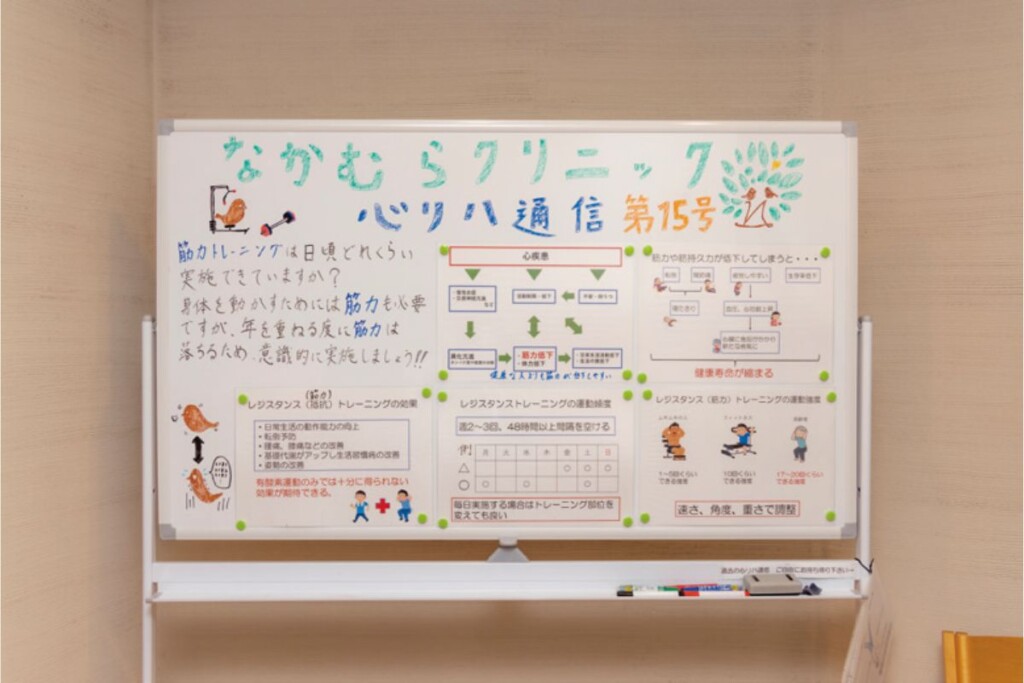 なかむらクリニック
心リハ通信 第15号
筋力トレーニングは日頃どれくらい
実施できていますか？
身体を動かすためには筋力も必要
ですが、年を重ねる度に筋力は
落ちるため、意識的に実施しましょう!!
心疾患
異化亢進
・筋力低下
・体力低下
健康な人よりも筋力が低下しやすい
筋力や筋持久力が低下してしまうと・・・
転倒
寝たきり
健康寿命が縮まる
(筋力)
レジスタンス（抵抗）トレーニングの効果
・日常生活の動作能力の向上
・転倒予防
・腰痛、膝痛などの改善
・基礎代謝がアップし生活習慣病の改善
・姿勢の改善
有酸素運動のみでは十分に得られない
効果が期待できる。
レジスタンストレーニングの運動頻度
週2～3回、48時間以上間隔を空ける
例 月 火 水 木 金 土 日
△ ○ ○ ○
○ ○ ○ ○
毎日実施する場合はトレーニング部位を
変えても良い
レジスタンス（筋力）トレーニングの運動強度
1～5回くらい
できる強度
10回くらい
できる強度
高齢者
17～20回くらい
できる強度
速さ、角度、重さで調整
過去の心リハ通信 ご自由にお持ち帰り下さい→